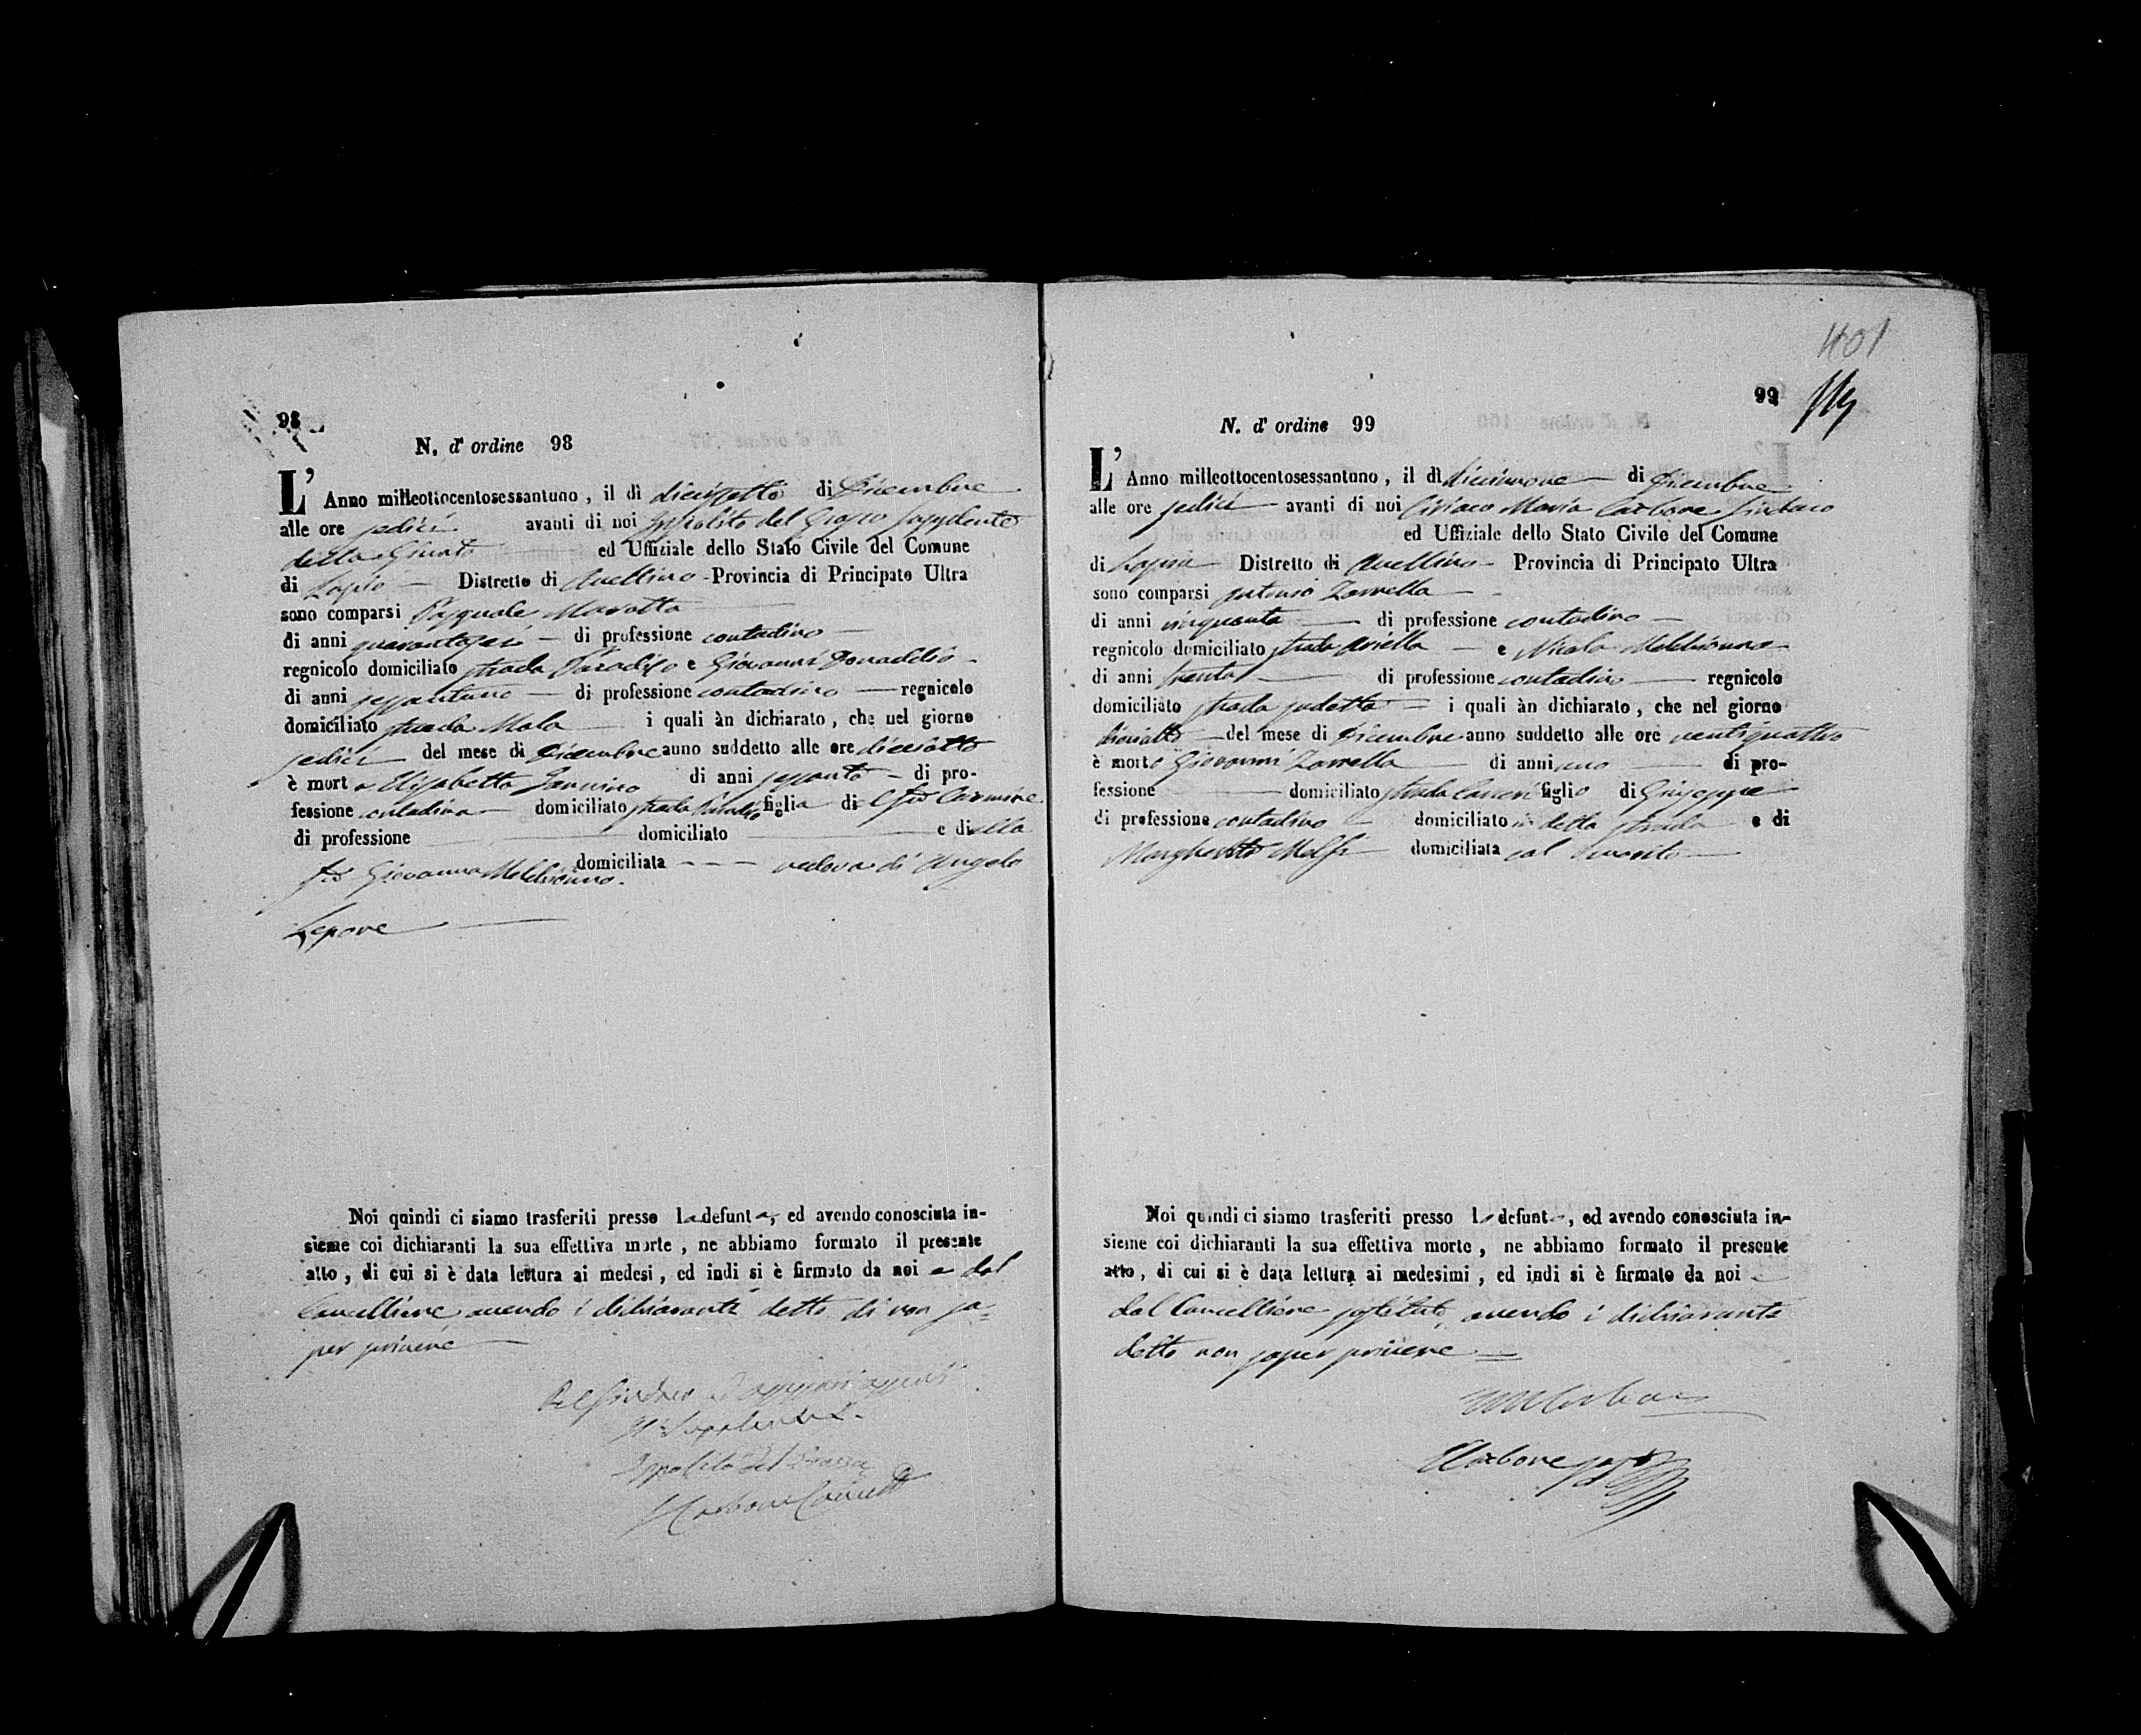 98
N. d' ordine 98
L' Anno milleottocentosessantuno, il dì diecisette di Dicembre
alle ore sedici avanti di noi Ippolito del Grosso supplente
della Giunta ed Uffiziale dello Stato Civile del Comune
di Lapio Distretto di Avellino Provincia di Principato Ultra
sono comparsi Pasquale Marotta
di anni quarantasei di professione contadino
regnicolo domiciliato strada Paradiso e Giovanni Donaddio
di anni sessantuno di professione contadino regnicolo
domiciliato strada Mala i quali àn dichiarato, che nel giorno
sedici del mese di Dicembre anno suddetto alle ore dieciotto
è morta Elisabetta Iannino di anni sessanta di pro-
fessione contadina domiciliato strada Paradiso figlia di fu Carmine
di professione domiciliato e di
fu Giovanna Melchionno domiciliata vedova di Angelo
Lepore
Noi quindi ci siamo trasferiti presso la defunta, ed avendo conosciuta in-
sieme coi dichiaranti la sua effettiva morte, ne abbiamo formato il presente
atto, di cui si è data lettura ai medesi, ed indi si è firmato da noi e dal
Cancelliere avendo i dichiaranti detto di non sa=
per scrivere
Pel Sindaco
Il Supplente
Ippolito del Grosso
Carbone
401
99
N. d' ordine 99
L' Anno milleottocentosessantuno, il dì diecinnove di Dicembre
alle ore sedici avanti di noi Ciriaco Maria Carbone Sindaco
ed Uffiziale dello Stato Civile del Comune
di Lapio Distretto di Avellino Provincia di Principato Ultra
sono comparsi Antonio Zarrella
di anni cinquanta di professione contadino
regnicolo domiciliato strada Ariella e Nicola Melchionno
di anni trenta di professione contadino regnicolo
domiciliato strada sudetta i quali àn dichiarato, che nel giorno
dieciotto del mese di Dicembre anno suddetto alle ore ventiquattro
è morto Giovanni Zarrella di anni uno di pro-
fessione domiciliato strada figlio di Giuseppe
di professione contadino domiciliato in detta strada e di
Margherita Melfi domiciliata col marito
Noi quindi ci siamo trasferiti presso lo defunto, ed avendo conosciuta in-
sieme coi dichiaranti la sua effettiva morte, ne abbiamo formato il presente
atto, di cui si è data lettura ai medesimi, ed indi si è firmato da noi e
dal Cancelliere sostituto, avendo i dichiaranti
detto non saper scrivere
Carbone